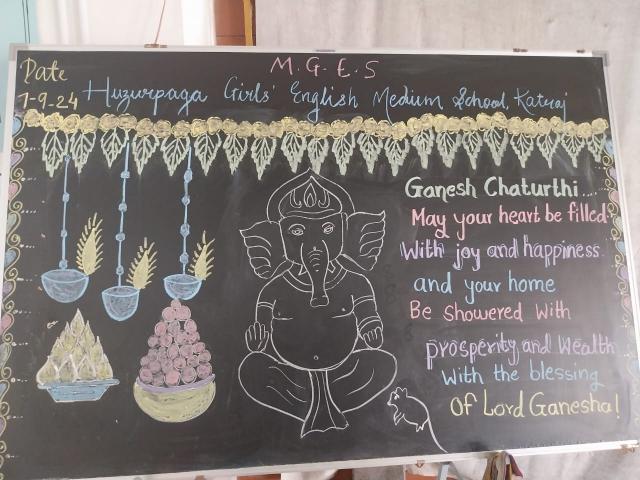 M.G.E.S
Date
7-9-24
Huzurpaga Girls' English Medium School, Katraj
Ganesh Chaturthi...
May your heart be filled
With joy and happiness
and your home
Be showered with
prosperity and Wealth
With the blessing
Of Lord Ganesha!